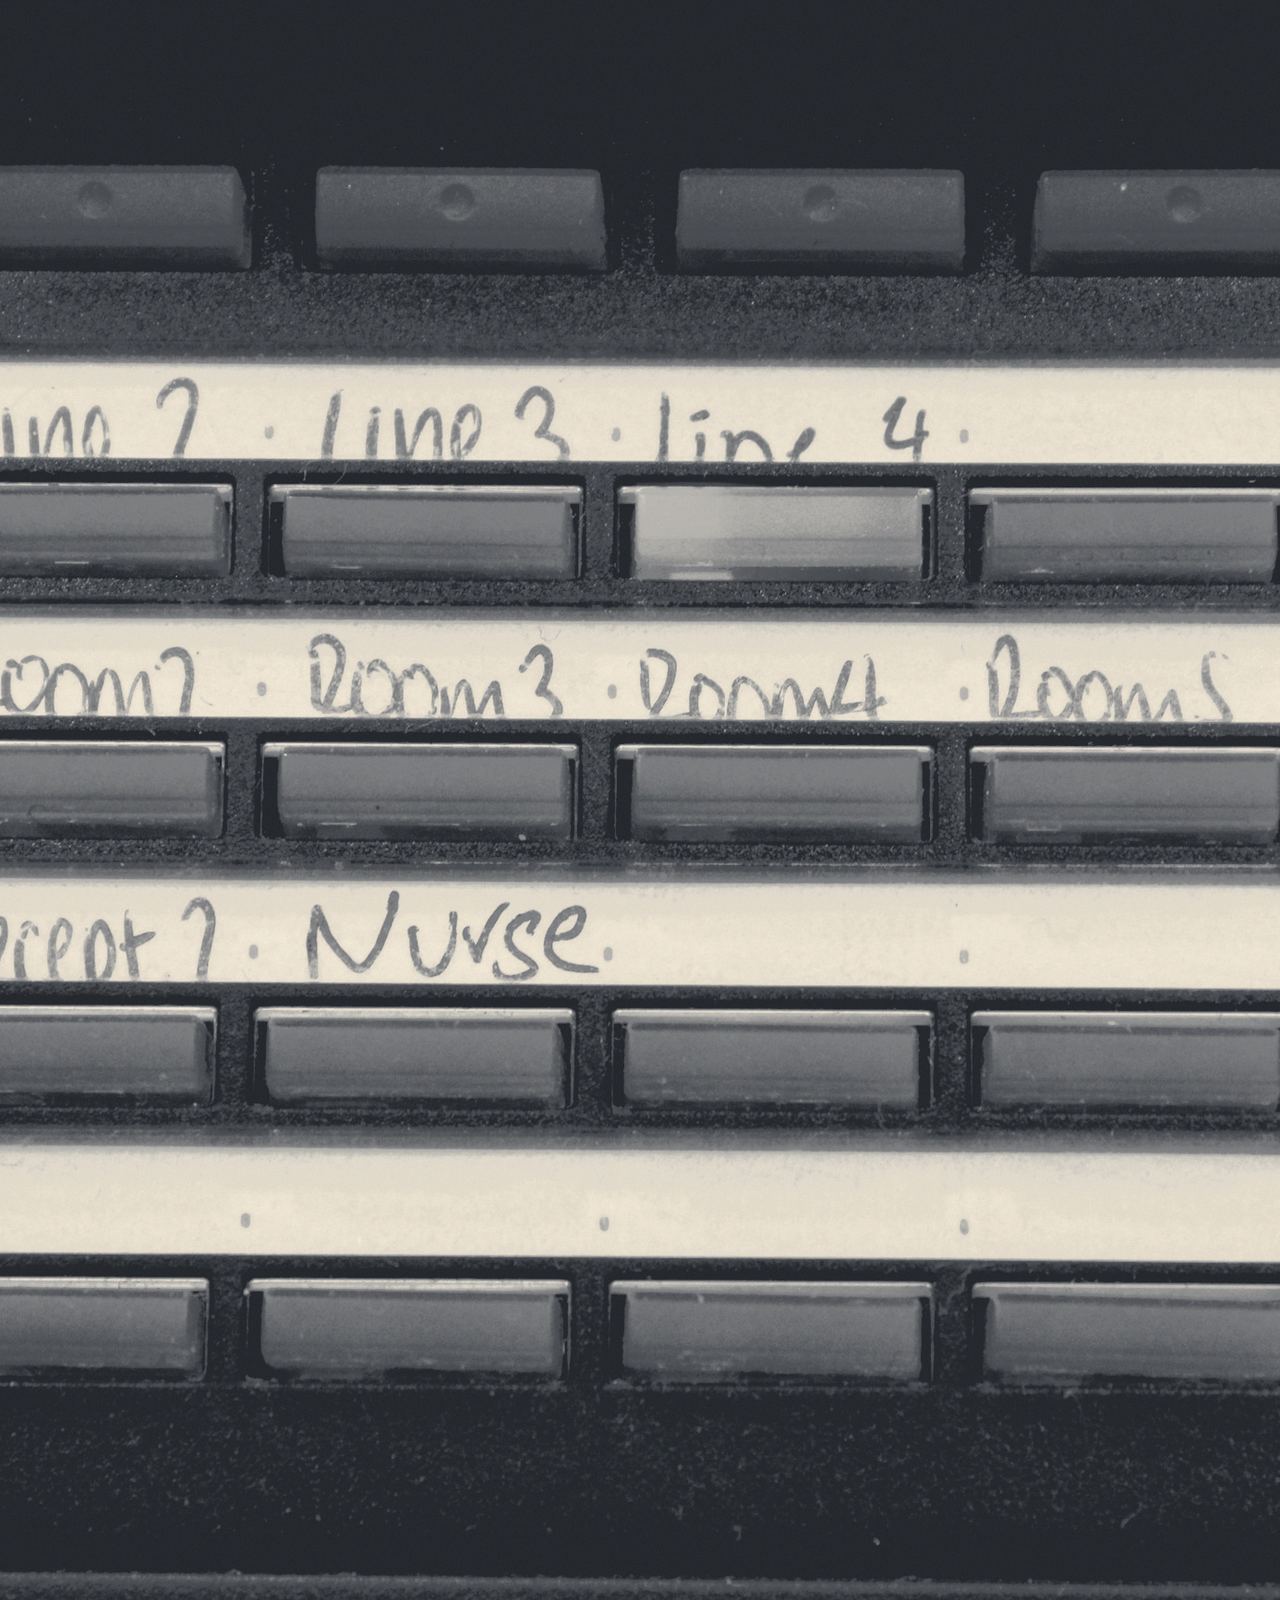 line 2 . line 3 . line 4 .
Room 2 . Room 3 . Room 4 . Room 5
Recept 2 . Nurse .